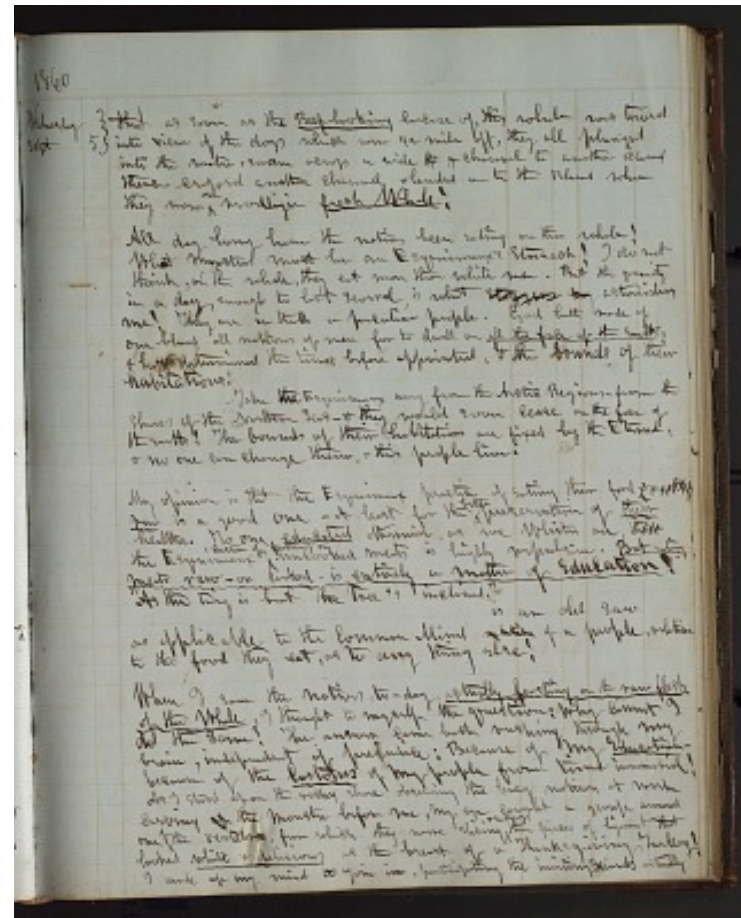 1860
Wednesday } that as soon as the
Sept 5 } into view of the dogs which were 1/4 mile off, they all plunged
into the water & swam across a wide channel to another Island
there crossed another channel & landed on to the Island where
they were revelling in fresh Whale!
All day long have the natives been eating on this whale!
What monsters must be an Esquimaux's Stomach! I do not
think, on the whole, they eat more than white men. But the quantity
in a day, enough to last several, is what astonishes
me! They are in this a peculiar people. God hath made of
one blood all nations of men for to dwell on all the face of the earth,
& hath determined the times before appointed, & the bounds of their
habitations!
Take the Esquimaux away from the Arctic Regions - from the
shores of the Northern Seas - & they would soon cease on the face of
the earth! The bounds of their habitation are fixed by the Eternal,
& no one can change them, & this people live!
My opinion is that the Esquimaux practice of eating their food
raw is a good one - at least for the preservation of their
health. To one educated otherwise, as we Whites are,
the Esquimaux uncooked meats is highly repulsive. But
meats raw - or cooked - is entirely a matter of Education!
"As the twig is bent the tree's inclined."
is an old saw
as applicable to the Common Mind of a people, relative
to the food they eat, as to any thing else!
When I saw the natives to-day actually feasting on the raw flesh
of the Whale, I thought to myself the question: Why cannot I
do the same? The answer came back rushing through my
brain, independent of prejudice: Because of my Education -
because of the customs of my people from time immemorial!
As I stood upon the rocky shore observing the busy natives at work
carving the Monster before me, my eye caught a group around
one of the vertebra from which they were
looked white & delicious as the breast of a Thanksgiving Turkey!
I made up my mind to join in, participating the inviting